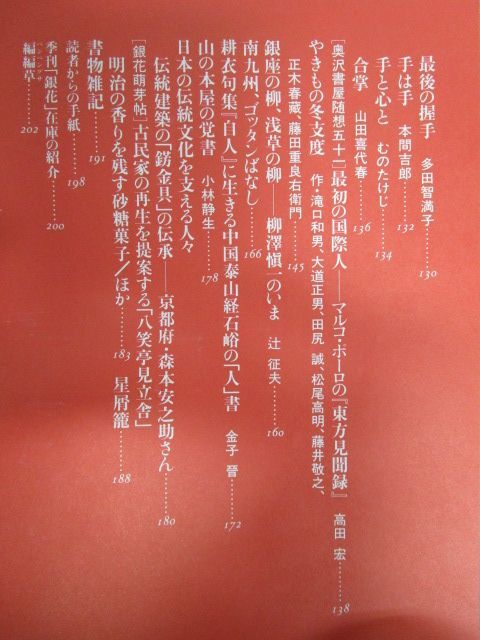 最後の握手　多田智満子………130
手は手　本間吉郎………132
手と心と　むのたけじ………134
合掌　山田喜代春………136
［奥沢書屋随想五十二］最初の国際人――マルコ・ポーロの『東方見聞録』　高田 宏………138
やきもの冬支度　作・滝口和男、大道正男、田尻 誠、松尾高明、藤井敬之、
正木春蔵、藤田重良右衛門………145
銀座の柳、浅草の柳――柳澤愼一のいま　辻 征夫………160
南九州、ゴッタンばなし………166
耕衣句集『自人』に生きる中国泰山経石峪の「人」書　金子 晉………172
山の本屋の覚書　小林静生………178
日本の伝統文化を支える人々
伝統建築の「錺金具」の伝承――京都府・森本安之助さん………180
［銀花萌芽帖］古民家の再生を提案する「八笑亭見立舎」
明治の香りを残す砂糖菓子／ほか………183　星屑籠………188
書物雑記………191
読者からの手紙………198
季刊「銀花」在庫の紹介………200
編編草………202